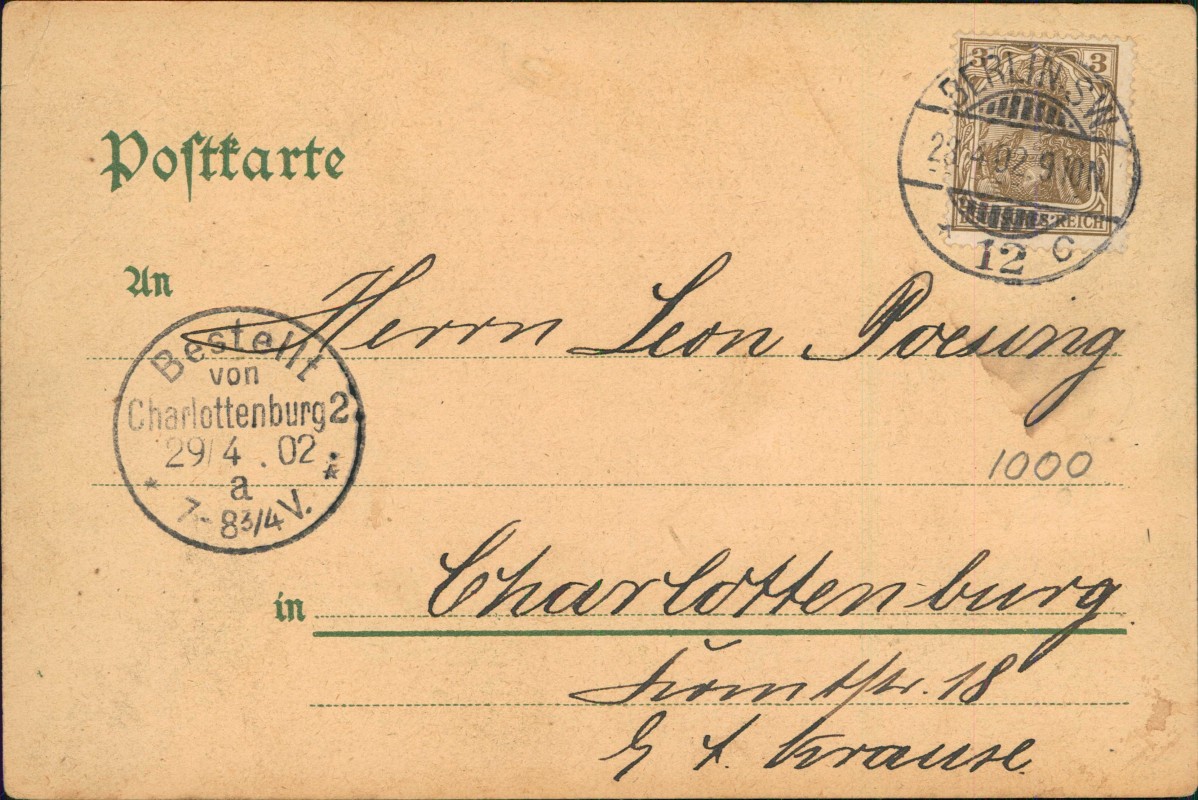 Postkarte
3 3
BERLIN S.W.
28.4.02.9-10N
REICH
* 12 C
An
Herrn Leon Poesing
Bestellt
von
Charlottenburg 2.
29/4.02.
a
* 7-8 3/4 V. *
1000
in
Charlottenburg
18
Krause